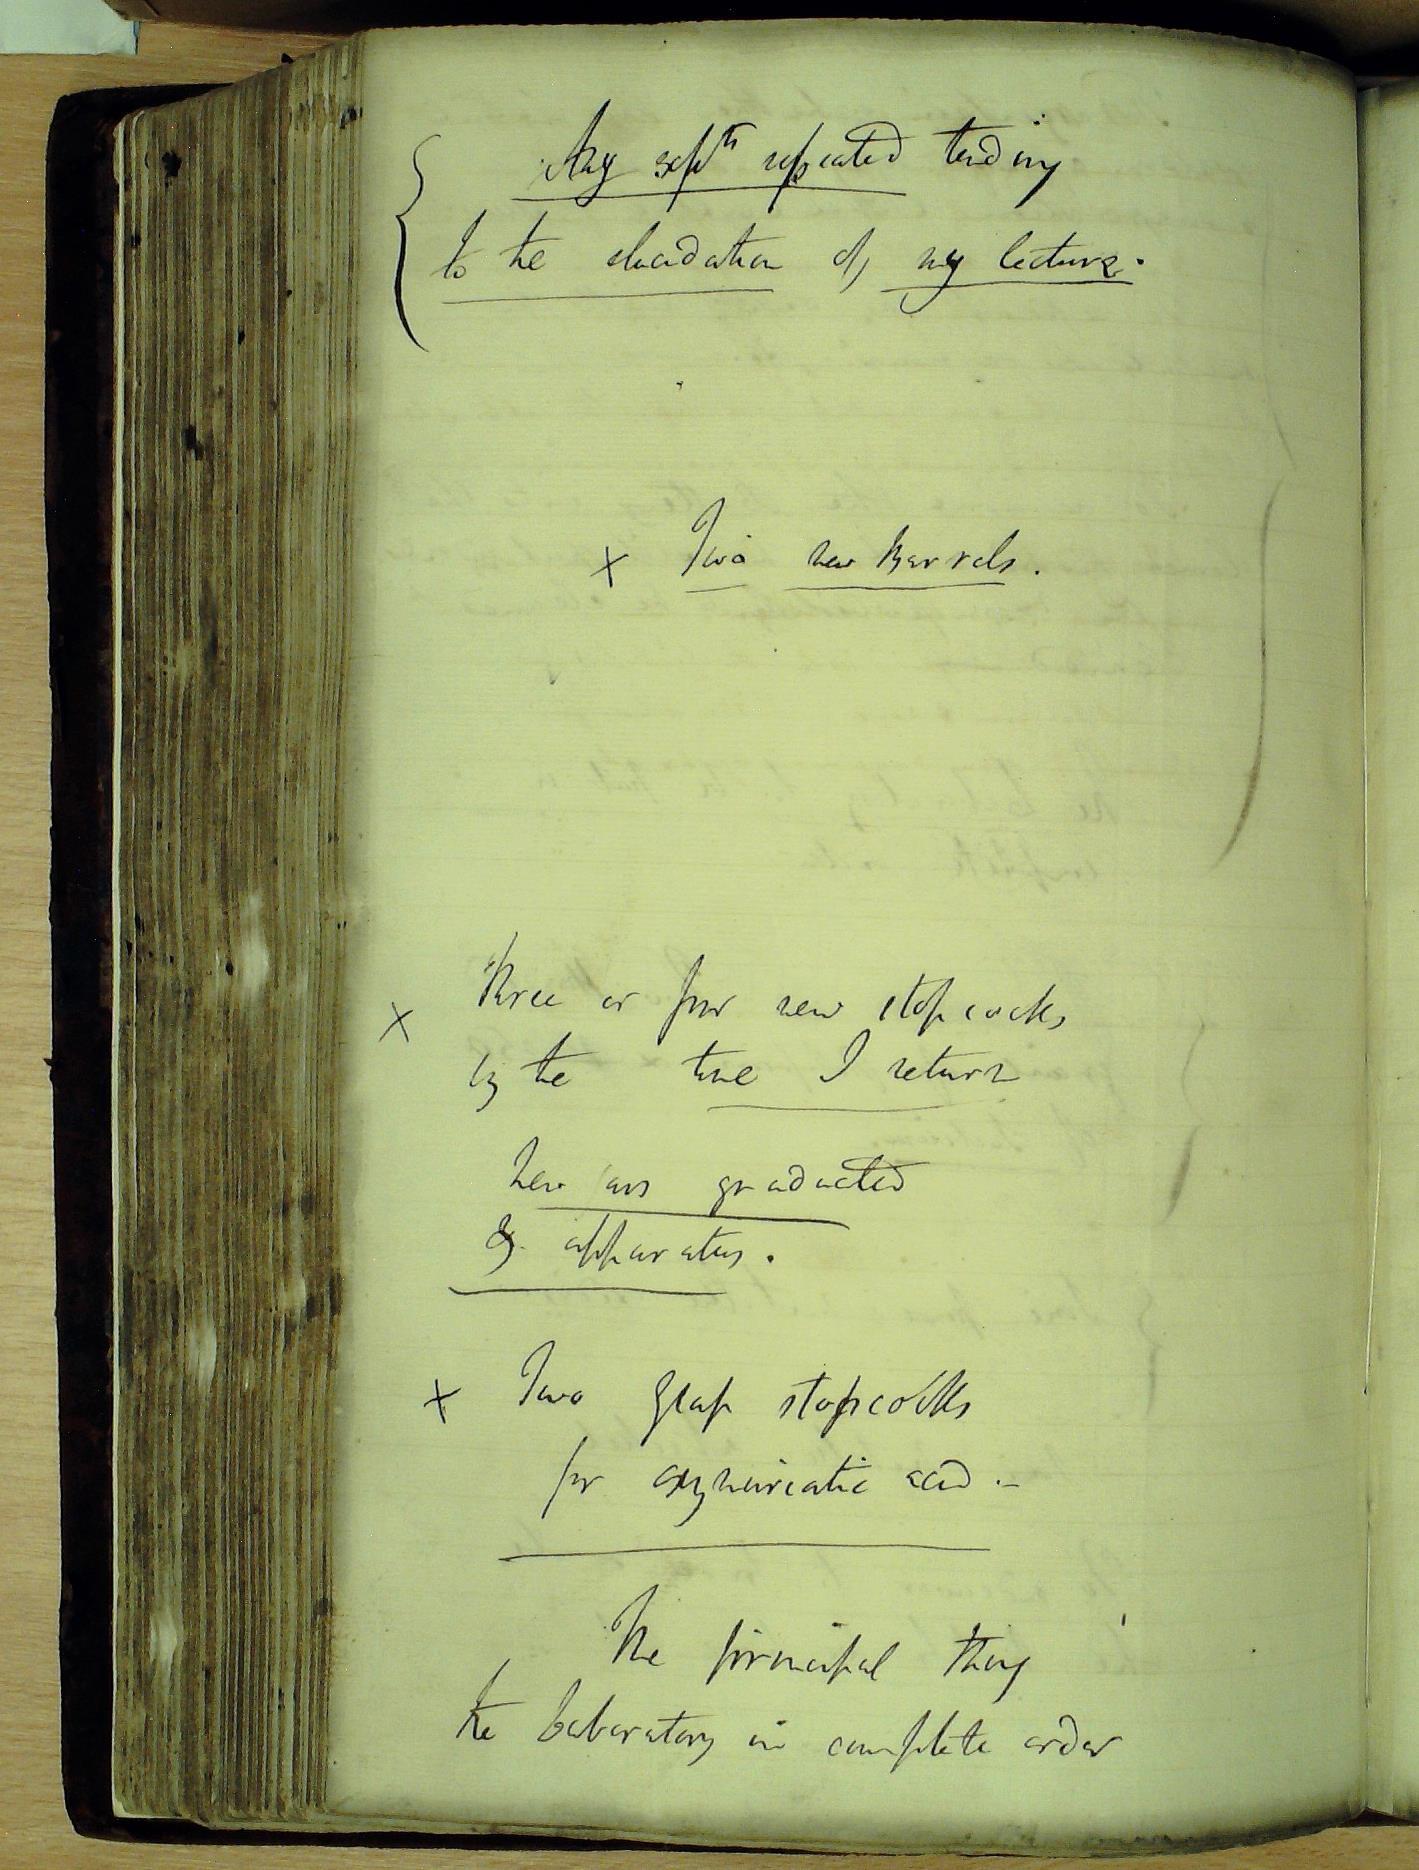 Any exp^ts repeated tending
to the elucidation of my lectures.
x Two new Barrels.
x Three or four new stopcocks
by the time I return
New graduated
apparatus.
x Two glass stopcocks
for oxymuriatic acid. -
The principal thing
the laboratory in complete order